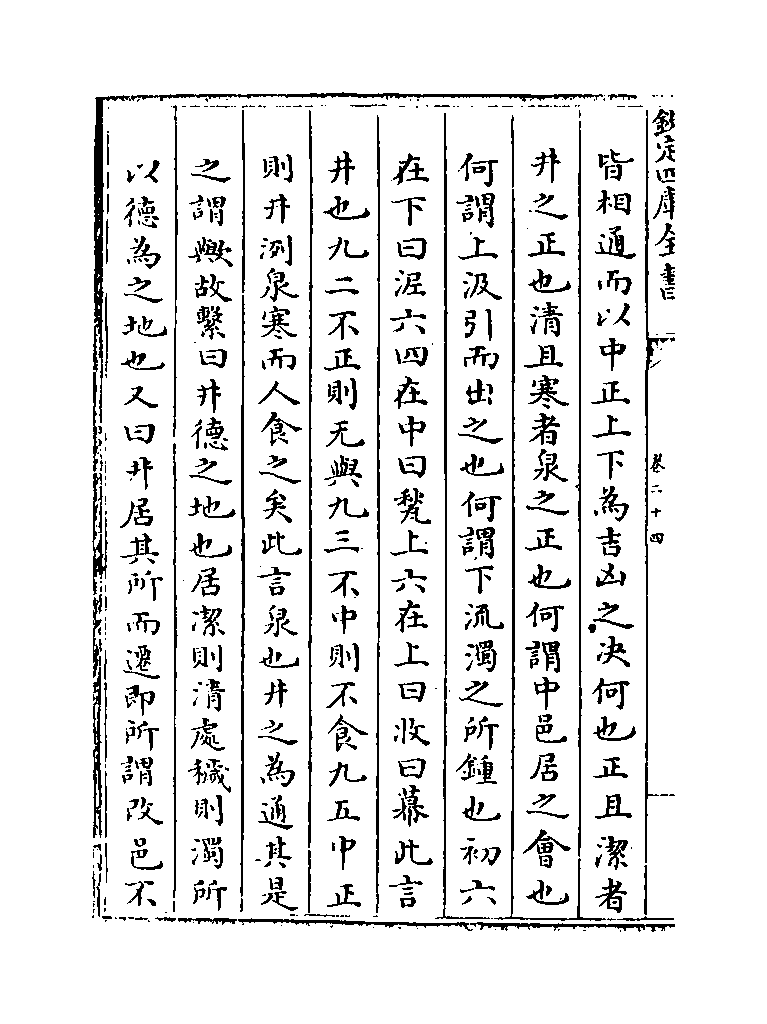 欽定四庫全書
卷二十四
皆相通而以中正上下為吉凶之決何也正且潔者
井之正也清且寒者泉之正也何謂中邑居之會也
何謂上汲引而出之也何謂下流濁之所鍾也初六
在下曰泥六四在中曰甃上六在上曰收曰幕此言
井也九二不正則无與九三不中則不食九五中正
則井洌泉寒而人食之矣此言泉也井之為通其是
之謂歟故繫曰井德之地也居潔則清處穢則濁所
以德為之地也又曰井居其所而遷即所謂改邑不